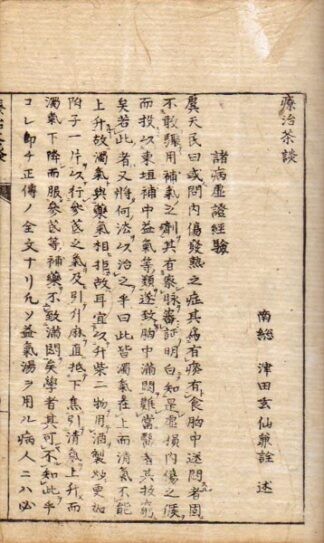 療治茶談
南総 津田玄仙兼詮 述
諸病虚證経驗
虞天民曰或問内傷發熱之症其為有痰有食胸中迷悶者固
不敢驟用補氣之劑其有察脉審証明白知是虚損内傷之候
而投以東垣補中益氣等類遂致胸中滿悶難當醫者其技窮
矣若此者又将何法以治之乎曰此皆濁氣在上而清氣不能
上升故濁氣與藥氣相拒故耳宜以升柴二物用酒製炒更加
附子一片以行參芪之氣及引升麻直抵下焦引清氣上升而
濁氣下降而服參芪等補藥不致滿悶矣學者其可不知此乎
コレ即チ正傳ノ全文ナリ凡ソ益氣湯ヲ用ル病人ニハ必